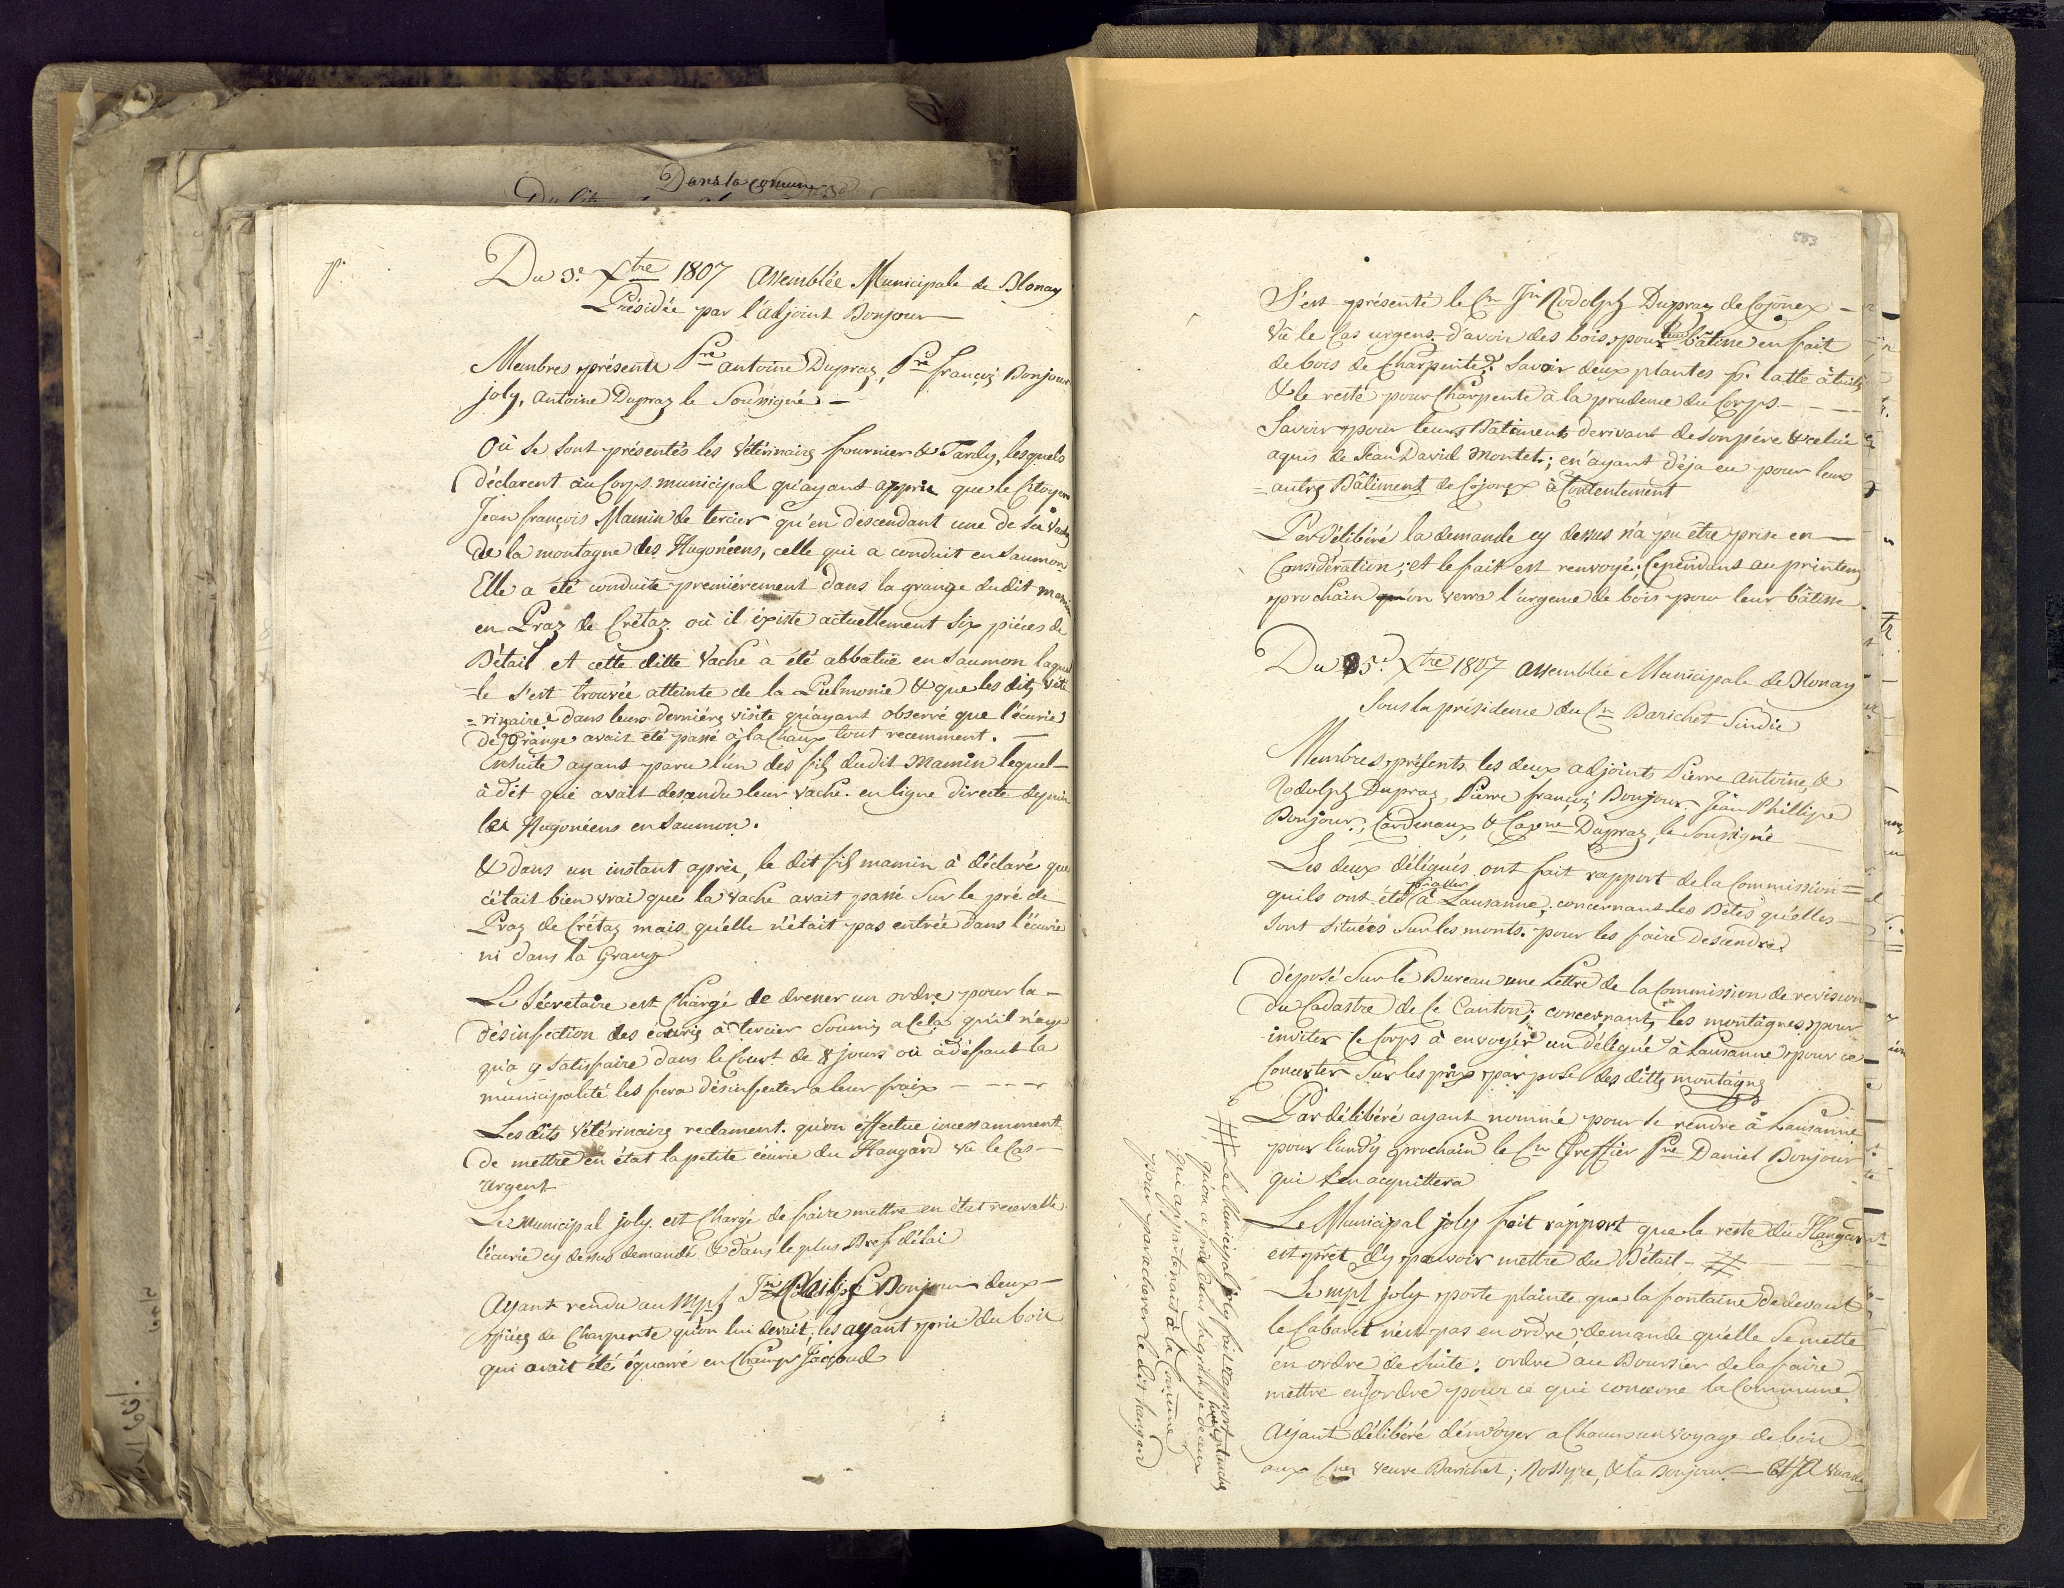 Dans la comune
Du 3.e Xtre 1807 Assemblée Municipale de Blonay
Présidée par l'adjoint Bonjour
Membres présents Pre antoine Dupraz, Pre françois Bonjour
joly, antoine Dupraz le Soussigné
Où se sont présentés les vétérinairs fournier & Tardy, lesquels
déclarent au Corps municipal qu'ayant appris que le Citoyen
Jean françois Mamin de tercier qu'en descendant une de ses vaches
de la montagne des Hugonéens, celle qui a conduit en Saumon
Elle a été conduite premiérement dans la grange dudit mamin
en Praz de Crétaz où il éxiste actuellement six piéces de
Bétail et cette ditte vache à été abbatuë en saumon laquel
=le s'est trouvée atteinte de la Pulmonie & que les dits vété
=rinaires dans leurs derniérs visite qu'ayant observé que l'écurie
de Grange avait été passé à la Chaux tout recemment.
Ensuite ayant paru l'un des fils dudit Mamin lequel
à dit qui avait descendu leur vache en ligne directe depuis
les Hugonéens en Saumon.
& dans un instant après, le dit fils mamin à déclaré que
c'était bien vrai que la vache avait passé sur le pré de
Praz de Crétaz mais qu'elle n'était pas entrée dans l'écurie
ni dans la Grange
Le Sécretaire est Chargé de dresser un ordre pour la
désinfection des écuries à tercier Soumis a Cela qu'il n'aye
qu'a y satisfaire dans le Court de 8 jours où à défaut la
municipalité les fera désinfecter a leur fraix
Les dits vétérinairs reclament qu'on éffectue incessamment
de mettre en état la petite écurie du Hangard vu le Cas
urgent
Le Municipal joly est Chargé de faire mettre en état recevable
l'écurie cy dessus demandé & dans le plus Bref délai
Ayant rendu au mpl Jn Philipe Bonjour deux
piéces de Charpente qu'on lui devait, les ayant pris du bois
qui avait été équarré en Champs Jaccoud
583
S'est présenté le Cn Jn Rodolph Dupraz de Cojonex
vû le Cas urgens d'avoir des bois pour leur bâtisse en fait
de bois de Charpente. Savoir deux plantes pr. latte à tuile
& le reste pour Charpente à la prudence du Corps
Savoir pour leurs Bâtiments derivant de son pére & celui
aquis de Jean David Montet; en ayant déja eu pour leur
autre Bâtiment de Cojonex à Contentement
Par délibéré la demande cy dessus n'a pu être prise en
Considération; et le fait est renvoyé; Cependant au printems
prochain on verra l'urgence de bois pour leur bâtisse
Du 5.e Xtre 1807 Assemblée Municipale de Blonay
Sous la présidence du Cn Barichet Sindic
Membres présents les deux adjoints Pierre Antoine, &
Rodolph Dupraz, Pierre françois Bonjour, Jean Phillipe
Bonjour, Cardenaux, & Dupraz, le Soussigné
Les deux délégués ont fait rapport de la Commission
quils ont été d'aller à Lausanne, concernant les Bétes qu'elles
sont situées sur les monts pour les faire descendre.
déposé sur le Bureau une Lettre de la Commission de revision
du Cadastre de Ce Canton; concernant les montagnes, pour
inviter le Corps à envoyer un délégué à Lausanne pour ce
Concerter sur les prix par pose des dittes montagnes
Par délibéré ayant nommé pour se rendre à Lausanne
pour lundy prochain le Cn Greffier Pre Daniel Bonjour
qui s'en acquittera
Le Municipal joly fait rapport que le reste du Hangar
est prêt d'y pouvoir mettre du Bétail - #
Le mpl joly porte plainte que la fontaine de devant
le Cabaret n'est pas en ordre; demande qu'elle se mette
en ordre de suite. ordre au Boursier de la faire
mettre en ordre pour ce qui concerne la Commune
Ayant délibéré d'envoyer a Chacun un voyage de bois
aux Cnes veuve Barichet; Rossyre, & la Bonjour
# Le Municipal joly fait rapport
qu'on a pris dans la grange de ceux
qui appartenait à la Comune
pour parachever le dit hangard